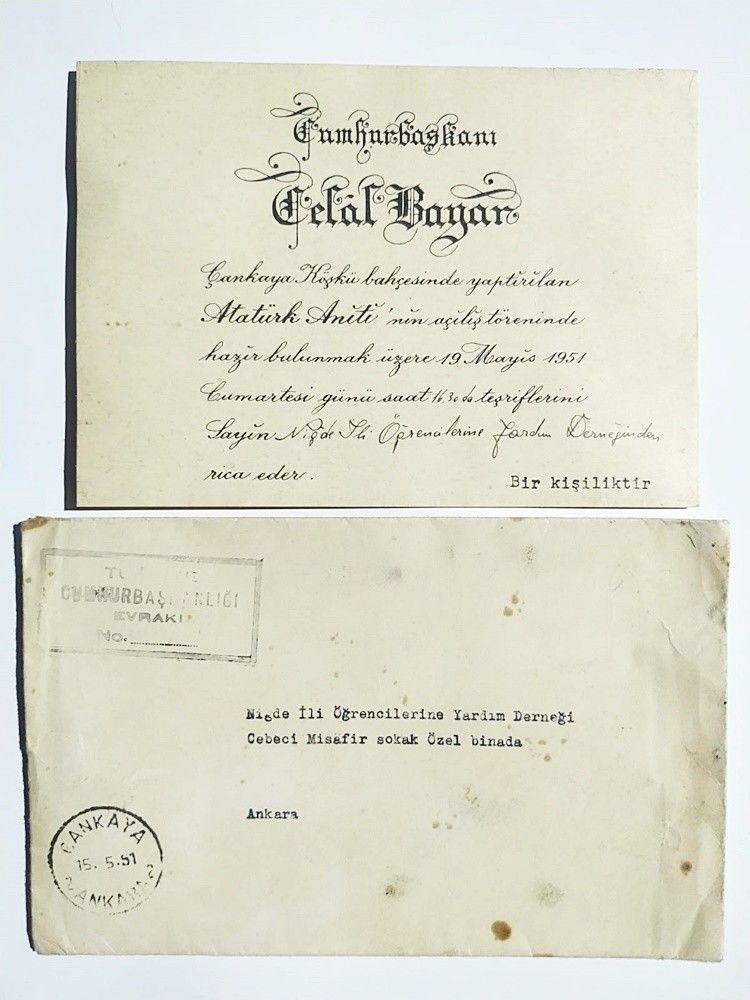 Cumhurbaşkanı
Celâl Bayar
Çankaya Köşkü bahçesinde yaptırılan
Atatürk Anıtı 'nın açılış töreninde
hazır bulunmak üzere 19 Mayıs 1951
Cumartesi günü saat 16.30 da teşriflerini
Sayın Niğde İli Öğrencilerine Yardım Derneğinden
rica eder.
Bir kişiliktir
CUMHURBAŞKANLIĞI
EVRAKI
No.
Niğde İli Öğrencilerine Yardım Derneği
Cebeci Misafir sokak Özel binada
Ankara
ÇANKAYA
15. 5. 51
ANKARA